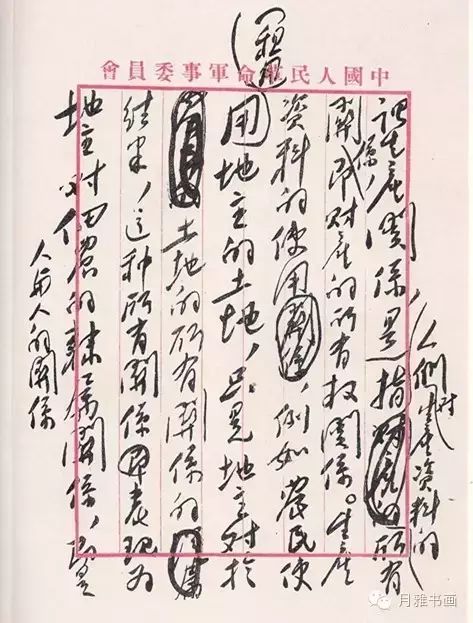 中國人民革命軍事委員會
人們對生產資料的
說生產關係,是指所有
關係,即財產的所有权關係。生產
資料的使用,例如農民使
用(租用)地主的土地,只是地主對於
土地的所有關係的
結果,這種所有關係表現为
地主對佃農的隸屬關係,即是
人与人的關係
月雅书画